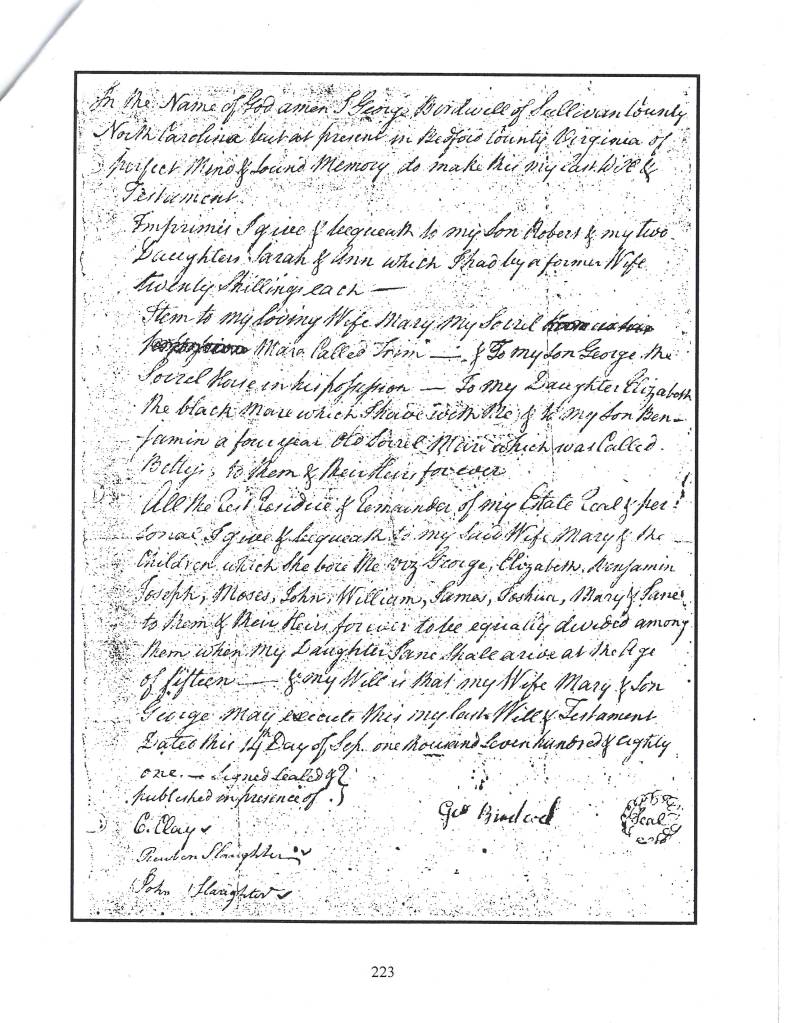 In the Name of God amen I George Birdwell of Sullivan County
North Carolina but at present in Bedford County Virginia of
perfect Mind & Sound Memory do make this my Last Will &
Testament.
Imprimis I give & bequeath to my Son Robert & my two
Daughters Sarah & Ann which I had by a former Wife
twenty Shillings each —
Item to my loving Wife Mary my Sorrel
Mare Called Trim — & To my Son George the
Sorrel Horse in his possession — To my Daughter Elizabeth
the black mare which I have with Me & to my Son Ben-
jamin a four year Old Sorrel Mare which was Called
Betty, to them & their Heirs forever
All the Rest Residue & Remainder of my Estate Real & per-
sonal I give & bequeath to my said Wife Mary & the
Children which She bore Me viz George, Elizabeth, Benjamin
Joseph, Moses, John, William, James, Joshua, Mary & Jane
to them & their Heirs forever to be equally divided among
them when my Daughter Jane Shall arive at the Age
of fifteen — & my Will is that my Wife Mary & Son
George may execute this my last Will & Testament
Dated this 14th Day of Sep. one thousand Seven hundred & eighty
one. — Signed Sealed &
published in presence of
Geo Birdwell
Seal
C. Clay
Reuben Slaughter
John Slaughter
223